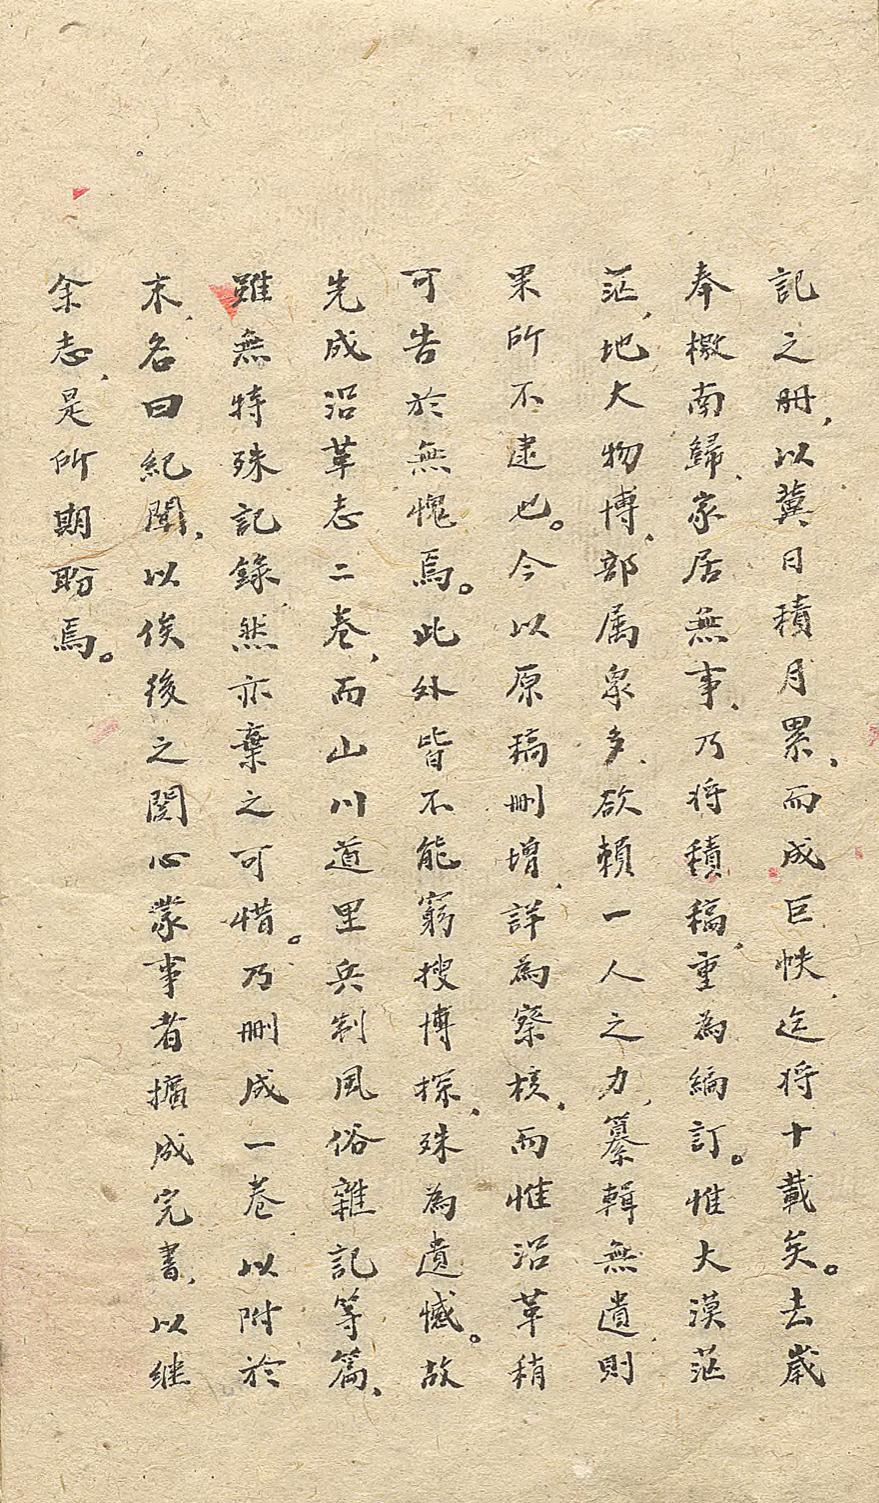 記之冊，以冀日積月累，而成巨帙，迄将十載矣。去歲
奉檄南歸、家居無事、乃将積稿、重為編訂。惟大漠茫
茫、地大物博、部属衆多、欲賴一人之力、纂輯無遺、則
果所不逮也。今以原稿刪增、詳為察核、而惟沿革稍
可告於無愧焉。此外皆不能窮搜博採、殊為遺憾。故
先成沿革志二卷、而山川道里兵制風俗雜記等篇、
雖無特殊記錄、然亦棄之可惜。乃刪成一卷以附於
末、名曰紀聞、以俟後之関心蒙事者擴成完書、以继
余志、是所期盼焉。